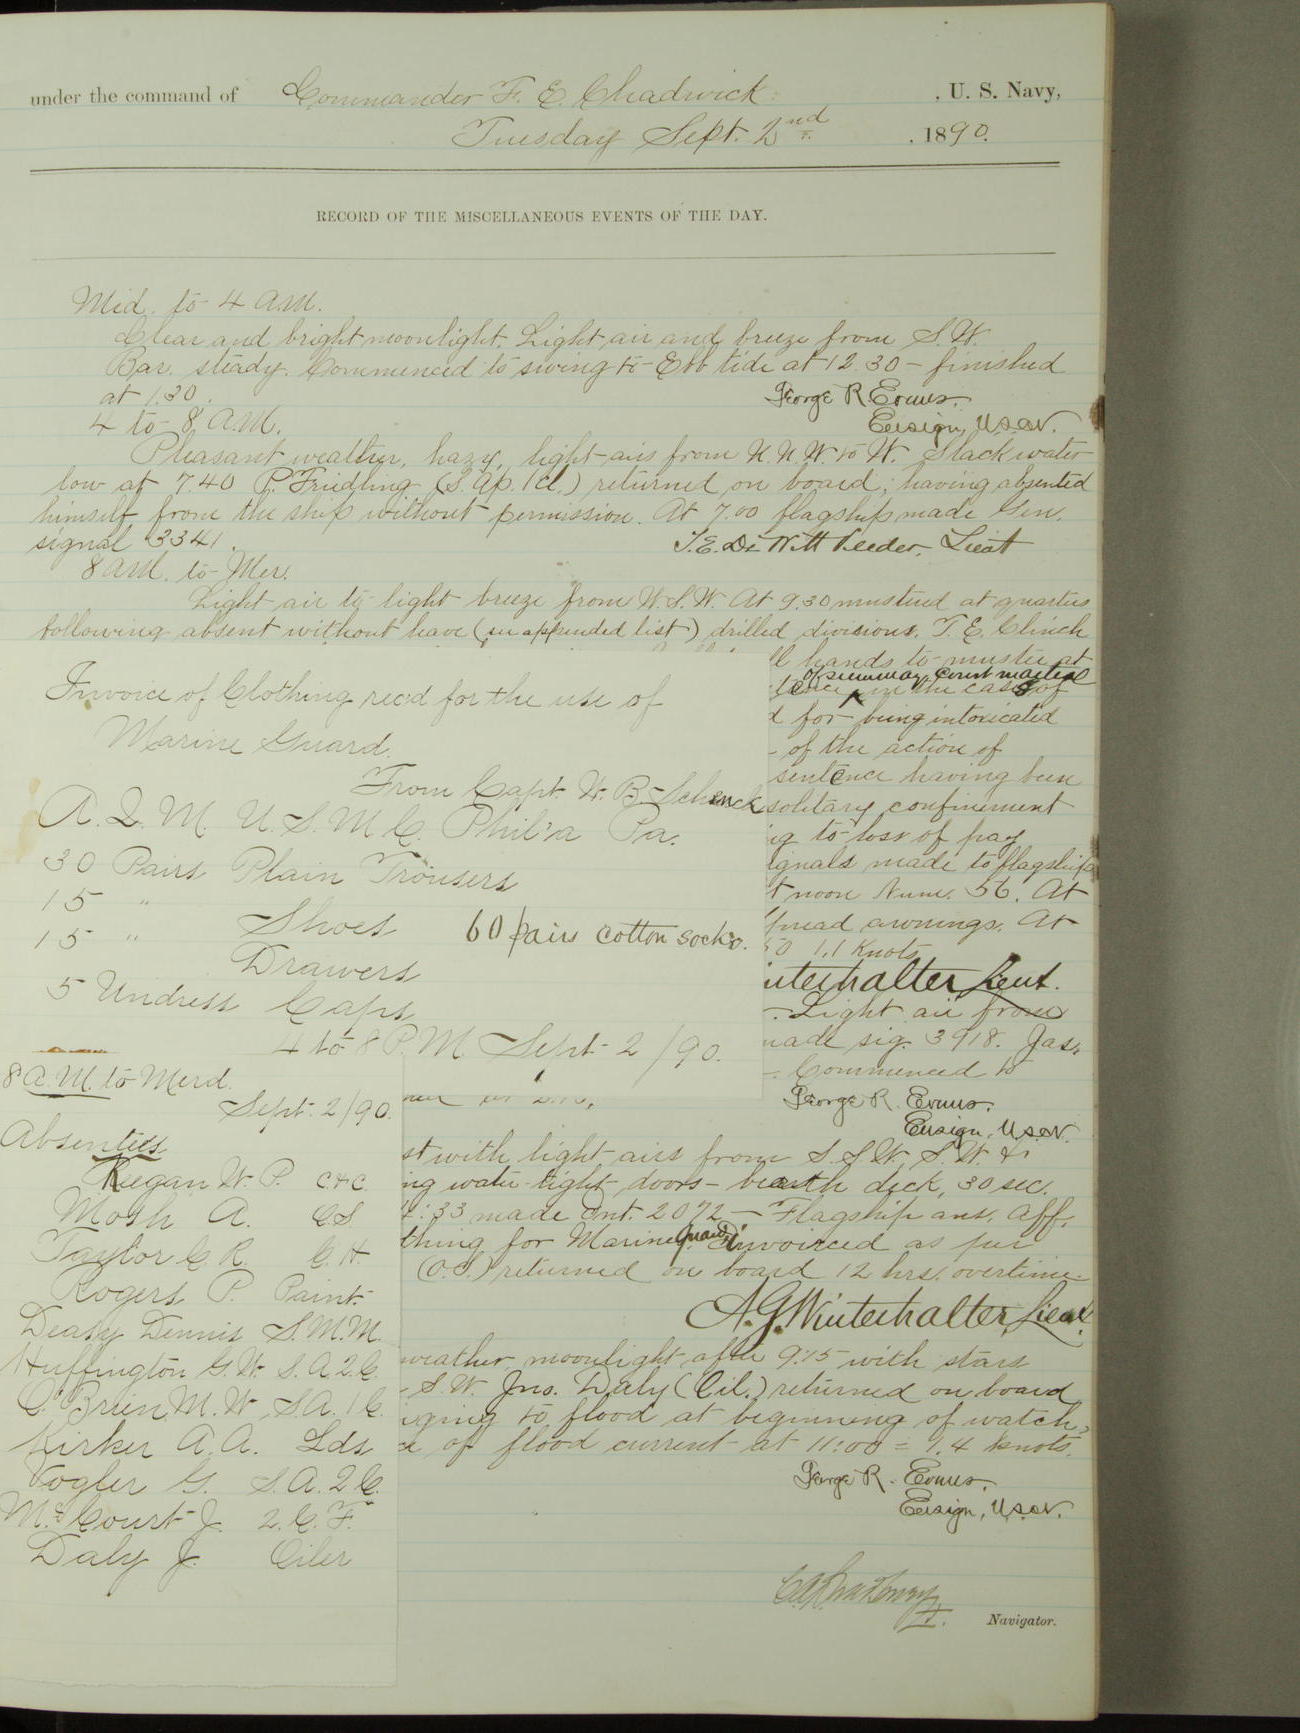 under the command of Commander F. E. Chadwick , U. S. Navy,
Tuesday Sept. 2nd , 1890.
RECORD OF THE MISCELLANEOUS EVENTS OF THE DAY.
Mid. to 4 A.M.
Clear and bright moonlight. Light air and breeze from S.W.
Bar. steady. Commenced to swing to Ebb tide at 12.30 - finished
at 1.30.
George R. Evans.
4 to 8 A.M.
Ensign, U.S.N.
Pleasant weather, hazy, light airs from N.N.W. to W. Slack water
low at 7.40 P. (S. Ap. 1 Cl.) returned on board; having absented
himself from the ship without permission. At 7.00 flagship made Gen.
signal 3341.
T. E. De Witt Veeder, Lieut
8 A.M. to Mer.
Light air to light breeze from W.S.W. At 9.30 mustered at quarters
following absent without leave (see appended list) drilled divisions. T. E. Clinch
ll hands to muster at
of summary court martial
in the case of
d for being intoxicated
of the action of
sentence having been
solitary confinement
g to loss of pay
ignals made to flagship
t noon Num. 56. At
pread awnings. At
50 1.1 Knots
interhalter Lieut.
Light air from
made sig. 3918. Jas.
Commenced to
George R. Evans.
Ensign, U.S.N.
st with light airs from S.S.W. S.W. &
ng water-tight doors - berth deck, 30 sec.
:33 made Ont. 2072 - Flagship ans. aff.
thing for Marine Guard invoiced as per
(O.S.) returned on board 12 hrs. overtime
A. G. Winterhalter, Lieut.
weather, moonlight after 9:15 with stars
S.W. Jno. Daly (Oil.) returned on board
nging to flood at beginning of watch,
of flood current at 11:00 = 1.4 knots.
George R. Evans.
Ensign, U.S.N.
Navigator.
Invoice of Clothing rec'd for the use of
Marine Guard.
From Capt. W. B. Schenck
A. Q. M. U. S. M. C. Phil'a Pa.
30 Pairs Plain Trousers
15 " Shoes 60 pairs cotton socks.
15 " Drawers
5 Undress Caps
4 to 8 P.M. Sept 2/90.
8 A.M. to Merd.
Sept. 2/90.
Absentees
Regan W. P. C.H.C.
Mosh A. C.S.
Taylor C. R. C. H.
Rogers P. Paint.
Deasy Dennis S.M.M.
Huffington G. W. S. A. 2 C.
O'Brien M. W. S. A. 1 C.
Kirker A. A. Lds
Vogler G. S. A. 2 C.
McCourt J. 2. C. F.
Daly J. Oiler